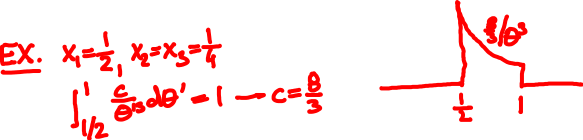 EX. x₁=1/2, x₂=x₃=1/4
∫_{1/2}^{1} c/θ'³ dθ' = 1 → c=8/3
8/3/θ³
1/2 1